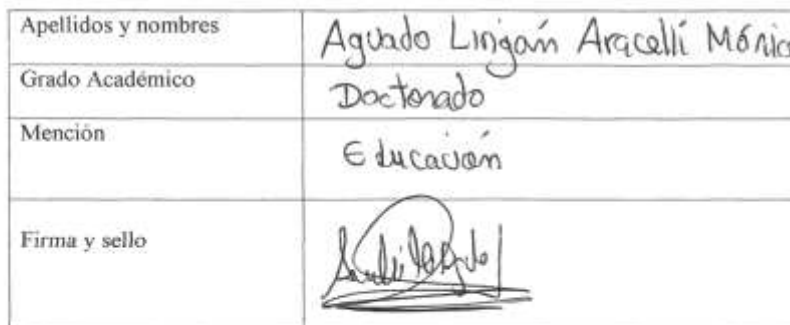 Apellidos y nombres Aguado Lingán Aracelli Mónic
Grado Académico Doctorado
Mención Educación
Firma y sello